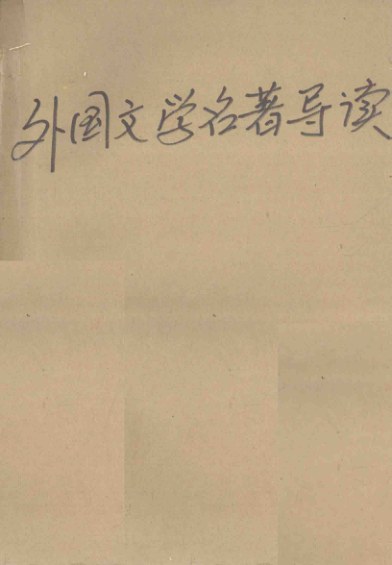 外国文学名著导读